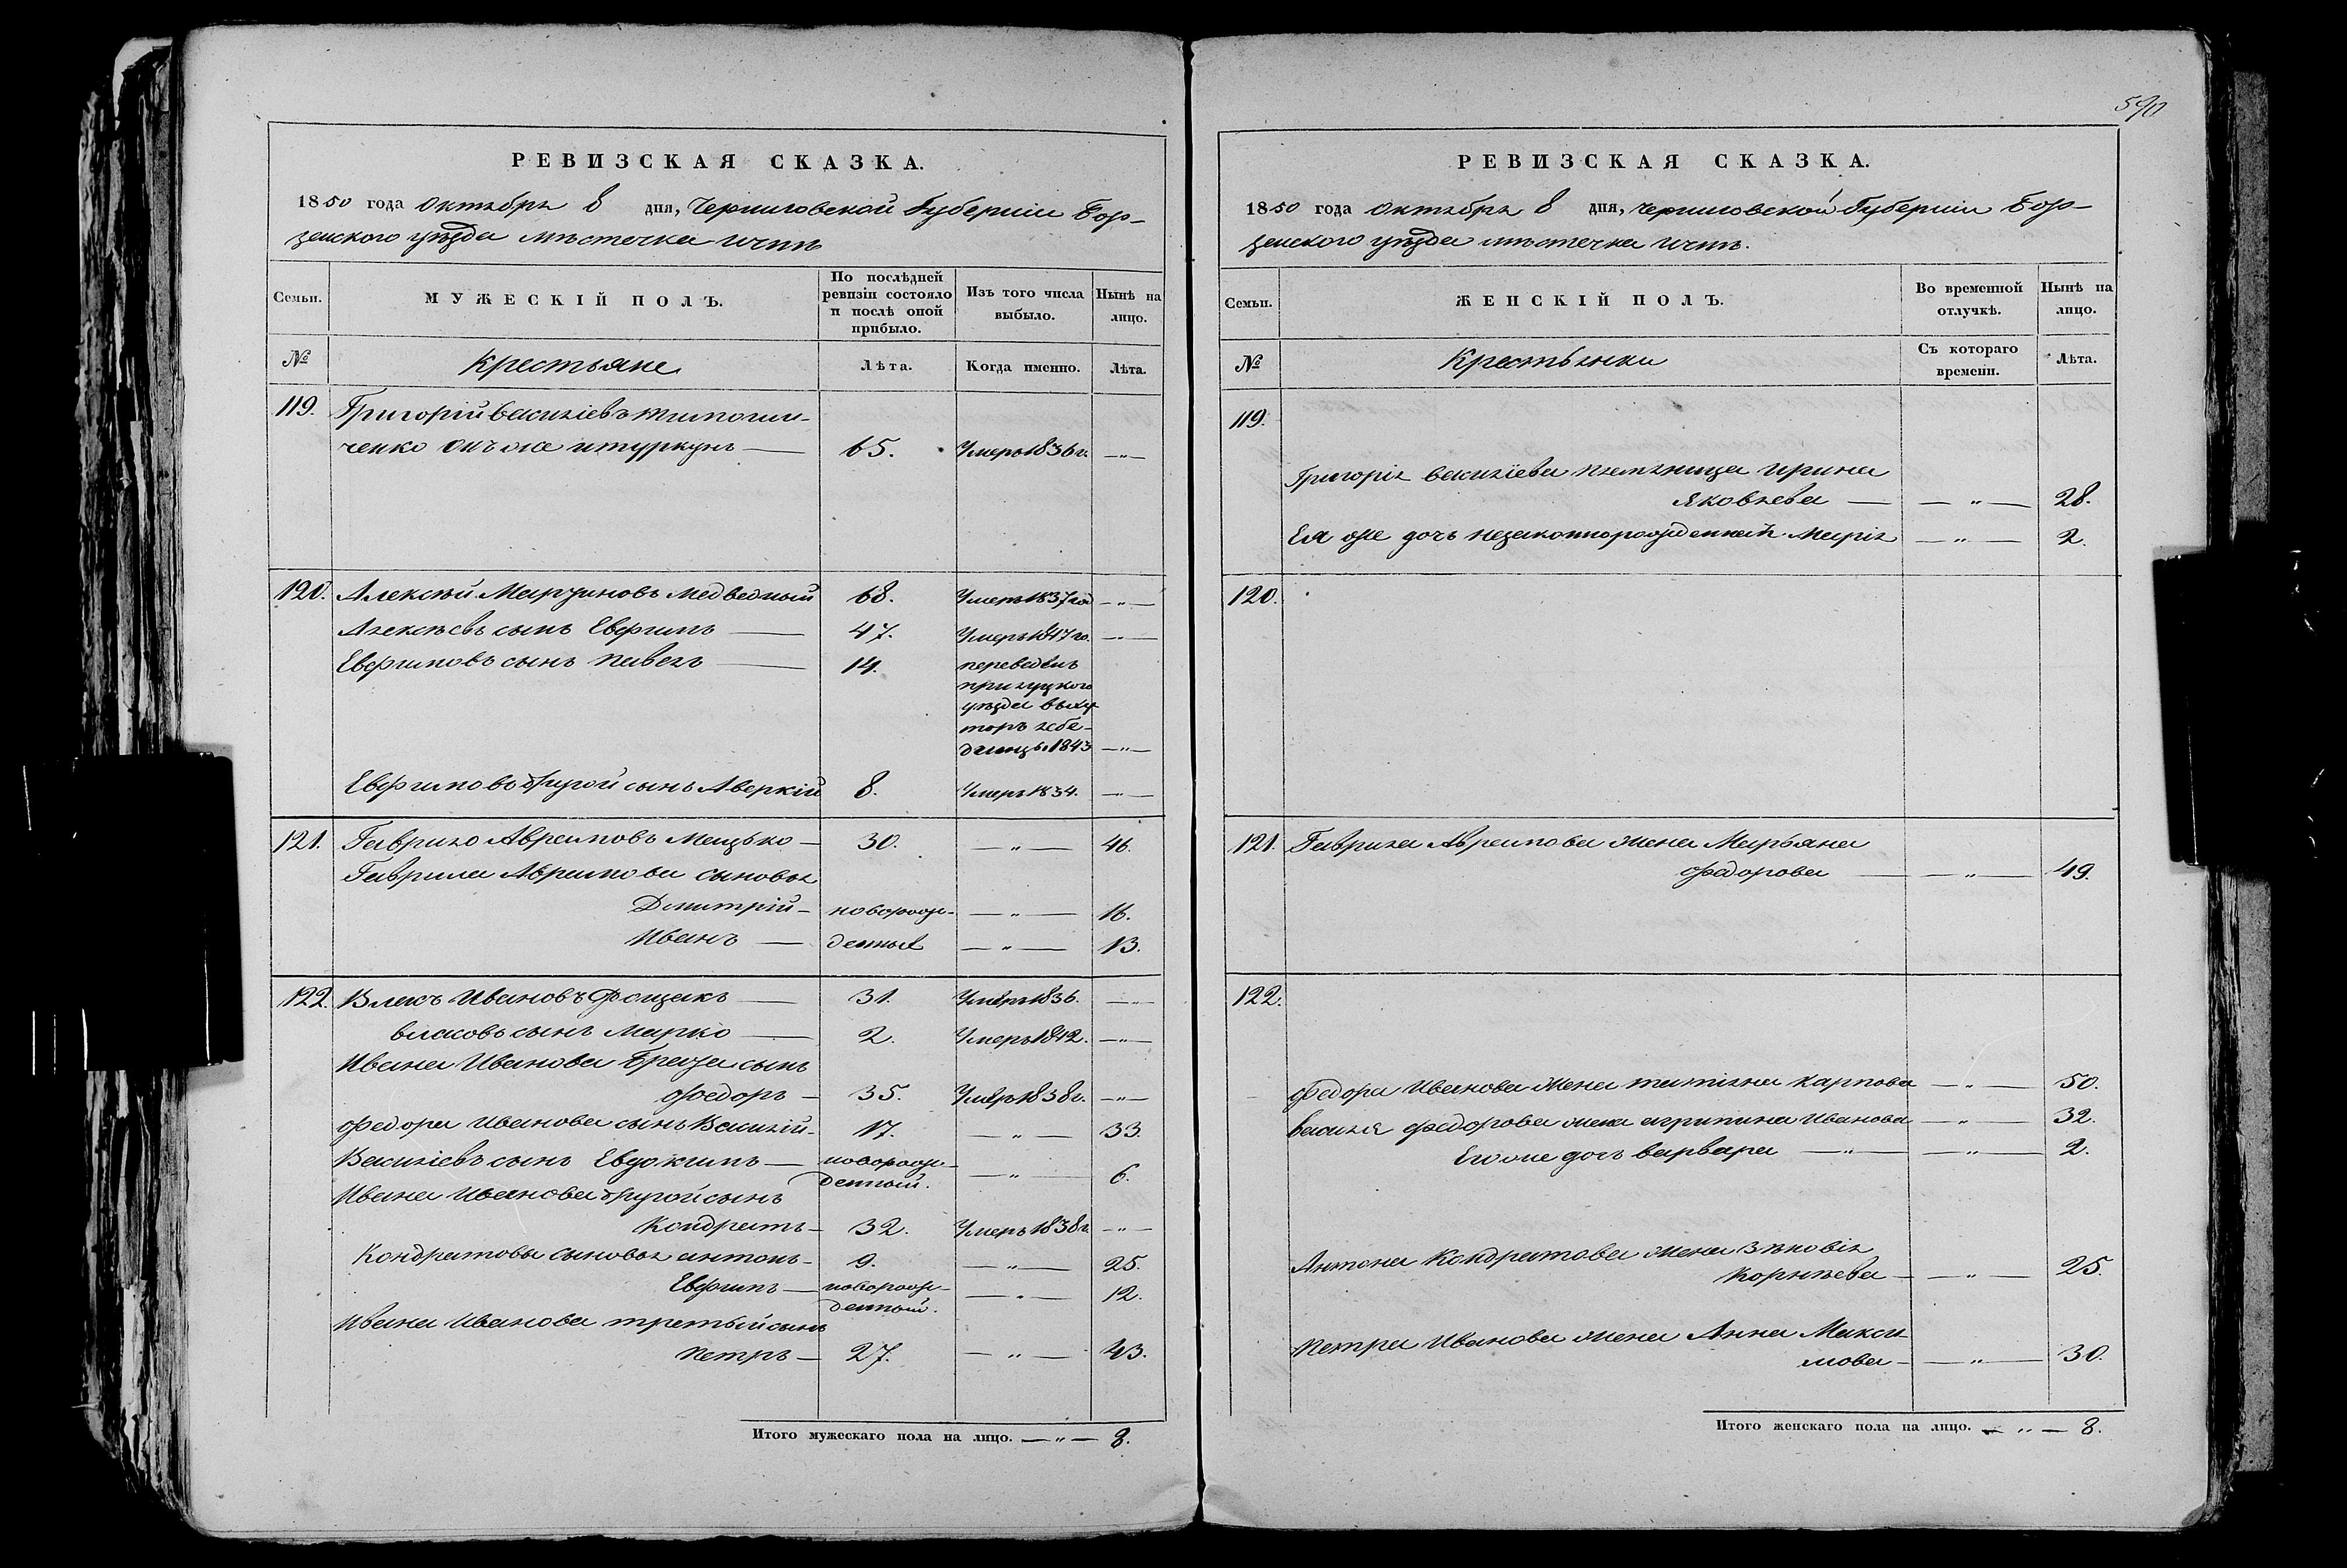 РЕВИЗСКАЯ СКАЗКА.
1850 года Октября 8 дня, Черниговской Губерніи Бор-
зенского уѣзда мѣстечка Ични
Семьи.
МУЖЕСКІЙ ПОЛЪ.
По послѣдней ревизіи состояло и послѣ оной прибыло.
Изъ того числа выбыло.
Нынѣ на лицо.
№ Крестьяне Лѣта. Когда именно. Лѣта.
119. Григорій Василіевъ
ченко онъ же 65. Умеръ 1836 г. —"—
120. Алексѣй Мартиновъ Медведный 68. Умеръ 1837 год —"—
Алексѣевъ сынъ Евфимъ — 47. Умеръ 1847 го. —"—
Евфимовъ сынъ Павелъ — 14. переведенъ
прилуцкого
уѣзда въ ху
торъ лебе-
динцы 1843 —"—
Евфимовъ другой сынъ Аверкій 8. Умеръ 1834. —"—
121. Гаврило Авраамовъ Мацько — 30. —"— 46.
Гаврила Авраамова сыновья
Дмитрій — новорож- —"— 16.
Иванъ — денные —"— 13.
122. Власъ Ивановъ Фощакъ — 31. Умеръ 1836. —"—
власовъ сынъ Марко — 2. Умеръ 1842. —"—
Ивана Иванова Брата сынъ
Федоръ — 35. Умеръ 1838 г. —"—
Федора Иванова сынъ Василій — 17. —"— 33.
Василіевъ сынъ Евдокимъ — новорож-
денный. —"— 6.
Ивана Иванова другой сынъ
Кондратъ — 32. Умеръ 1838 г. —"—
Кондратовы сыновья антонъ — 9. —"— 25.
Евфимъ — новорож-
денный. —"— 12.
Ивана Иванова третьій сынъ
Петръ — 27. —"— 43.
Итого мужескаго пола на лицо. —"— 8.
590
РЕВИЗСКАЯ СКАЗКА.
1850 года Октября 8 дня, Черниговской Губерніи Бор-
зенского уѣзда мѣстечка Ични.
Семьи.
ЖЕНСКІЙ ПОЛЪ.
Во временной отлучкѣ.
Нынѣ на лицо.
№ Крестьянки Съ котораго времени. Лѣта.
119.
Григорія Василіева племяница Ирина
Яковлева — —"— 28.
Ея же дочь незаконнорожденная Марія —"— 2.
120.
121. Гаврила Авраамова жена Марьяна
Федорова — —"— 49.
122.
Федора Иванова жена татіяна Карпова —"— 50.
Василя Федорова жена агрипина Иванова —"— 32.
Его же дочь варвара —"— —"— 2.
Антона Кондратова жена Зѣновія
Корнѣева — —"— 25.
Петра Иванова жена Анна Макси
мова — —"— 30.
Итого женскаго пола на лицо. —"— 8.